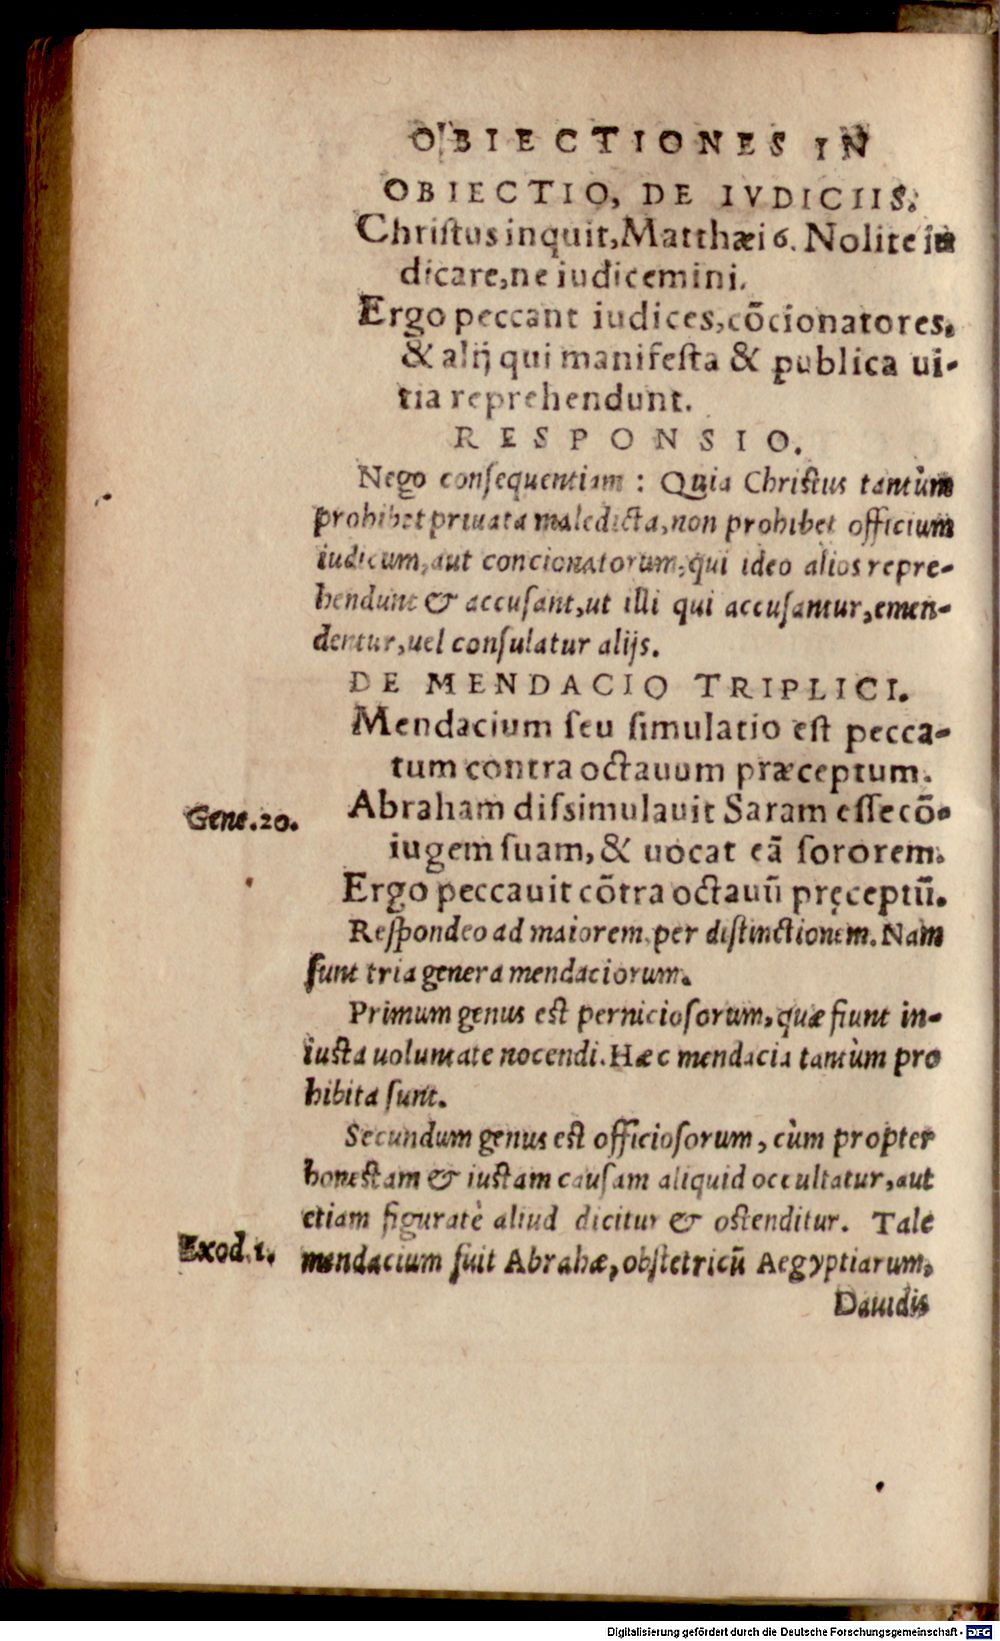 OBIECTIONES IN
OBIECTIO, DE IVDICIIS.
Christus inquit, Matthæi 6. Nolite iu
dicare, ne iudicemini.
Ergo peccant iudices, cõcionatores,
& alij qui manifesta & publica ui-
tia reprehendunt.
RESPONSIO.
Nego consequentiam : Quia Christus tantùm
prohibet priuata maledicta, non prohibet officium
iudicum, aut concionatorum, qui ideo alios repre-
hendunt & accusant, ut illi qui accusantur, emen-
dentur, uel consulatur alijs.
DE MENDACIO TRIPLICI.
Mendacium seu simulatio est pecca-
tum contra octauum præceptum.
Gene. 20.
Abraham dissimulauit Saram esse cõ-
iugem suam, & uocat eã sororem.
Ergo peccauit cõtra octauũ pręceptũ.
Respondeo ad maiorem, per distinctionem. Nam
sunt tria genera mendaciorum.
Primum genus est perniciosorum, quæ fiunt in-
iusta uoluntate nocendi. Hæc mendacia tantùm pro
hibita sunt.
Secundum genus est officiosorum, cùm propter
honestam & iustam causam aliquid occultatur, aut
etiam figuratè aliud dicitur & ostenditur. Tale
Exod. 1.
mendacium fuit Abrahæ, obstetricũ Aegyptiarum,
Dauidis
Digitalisierung gefördert durch die Deutsche Forschungsgemeinschaft - DFG